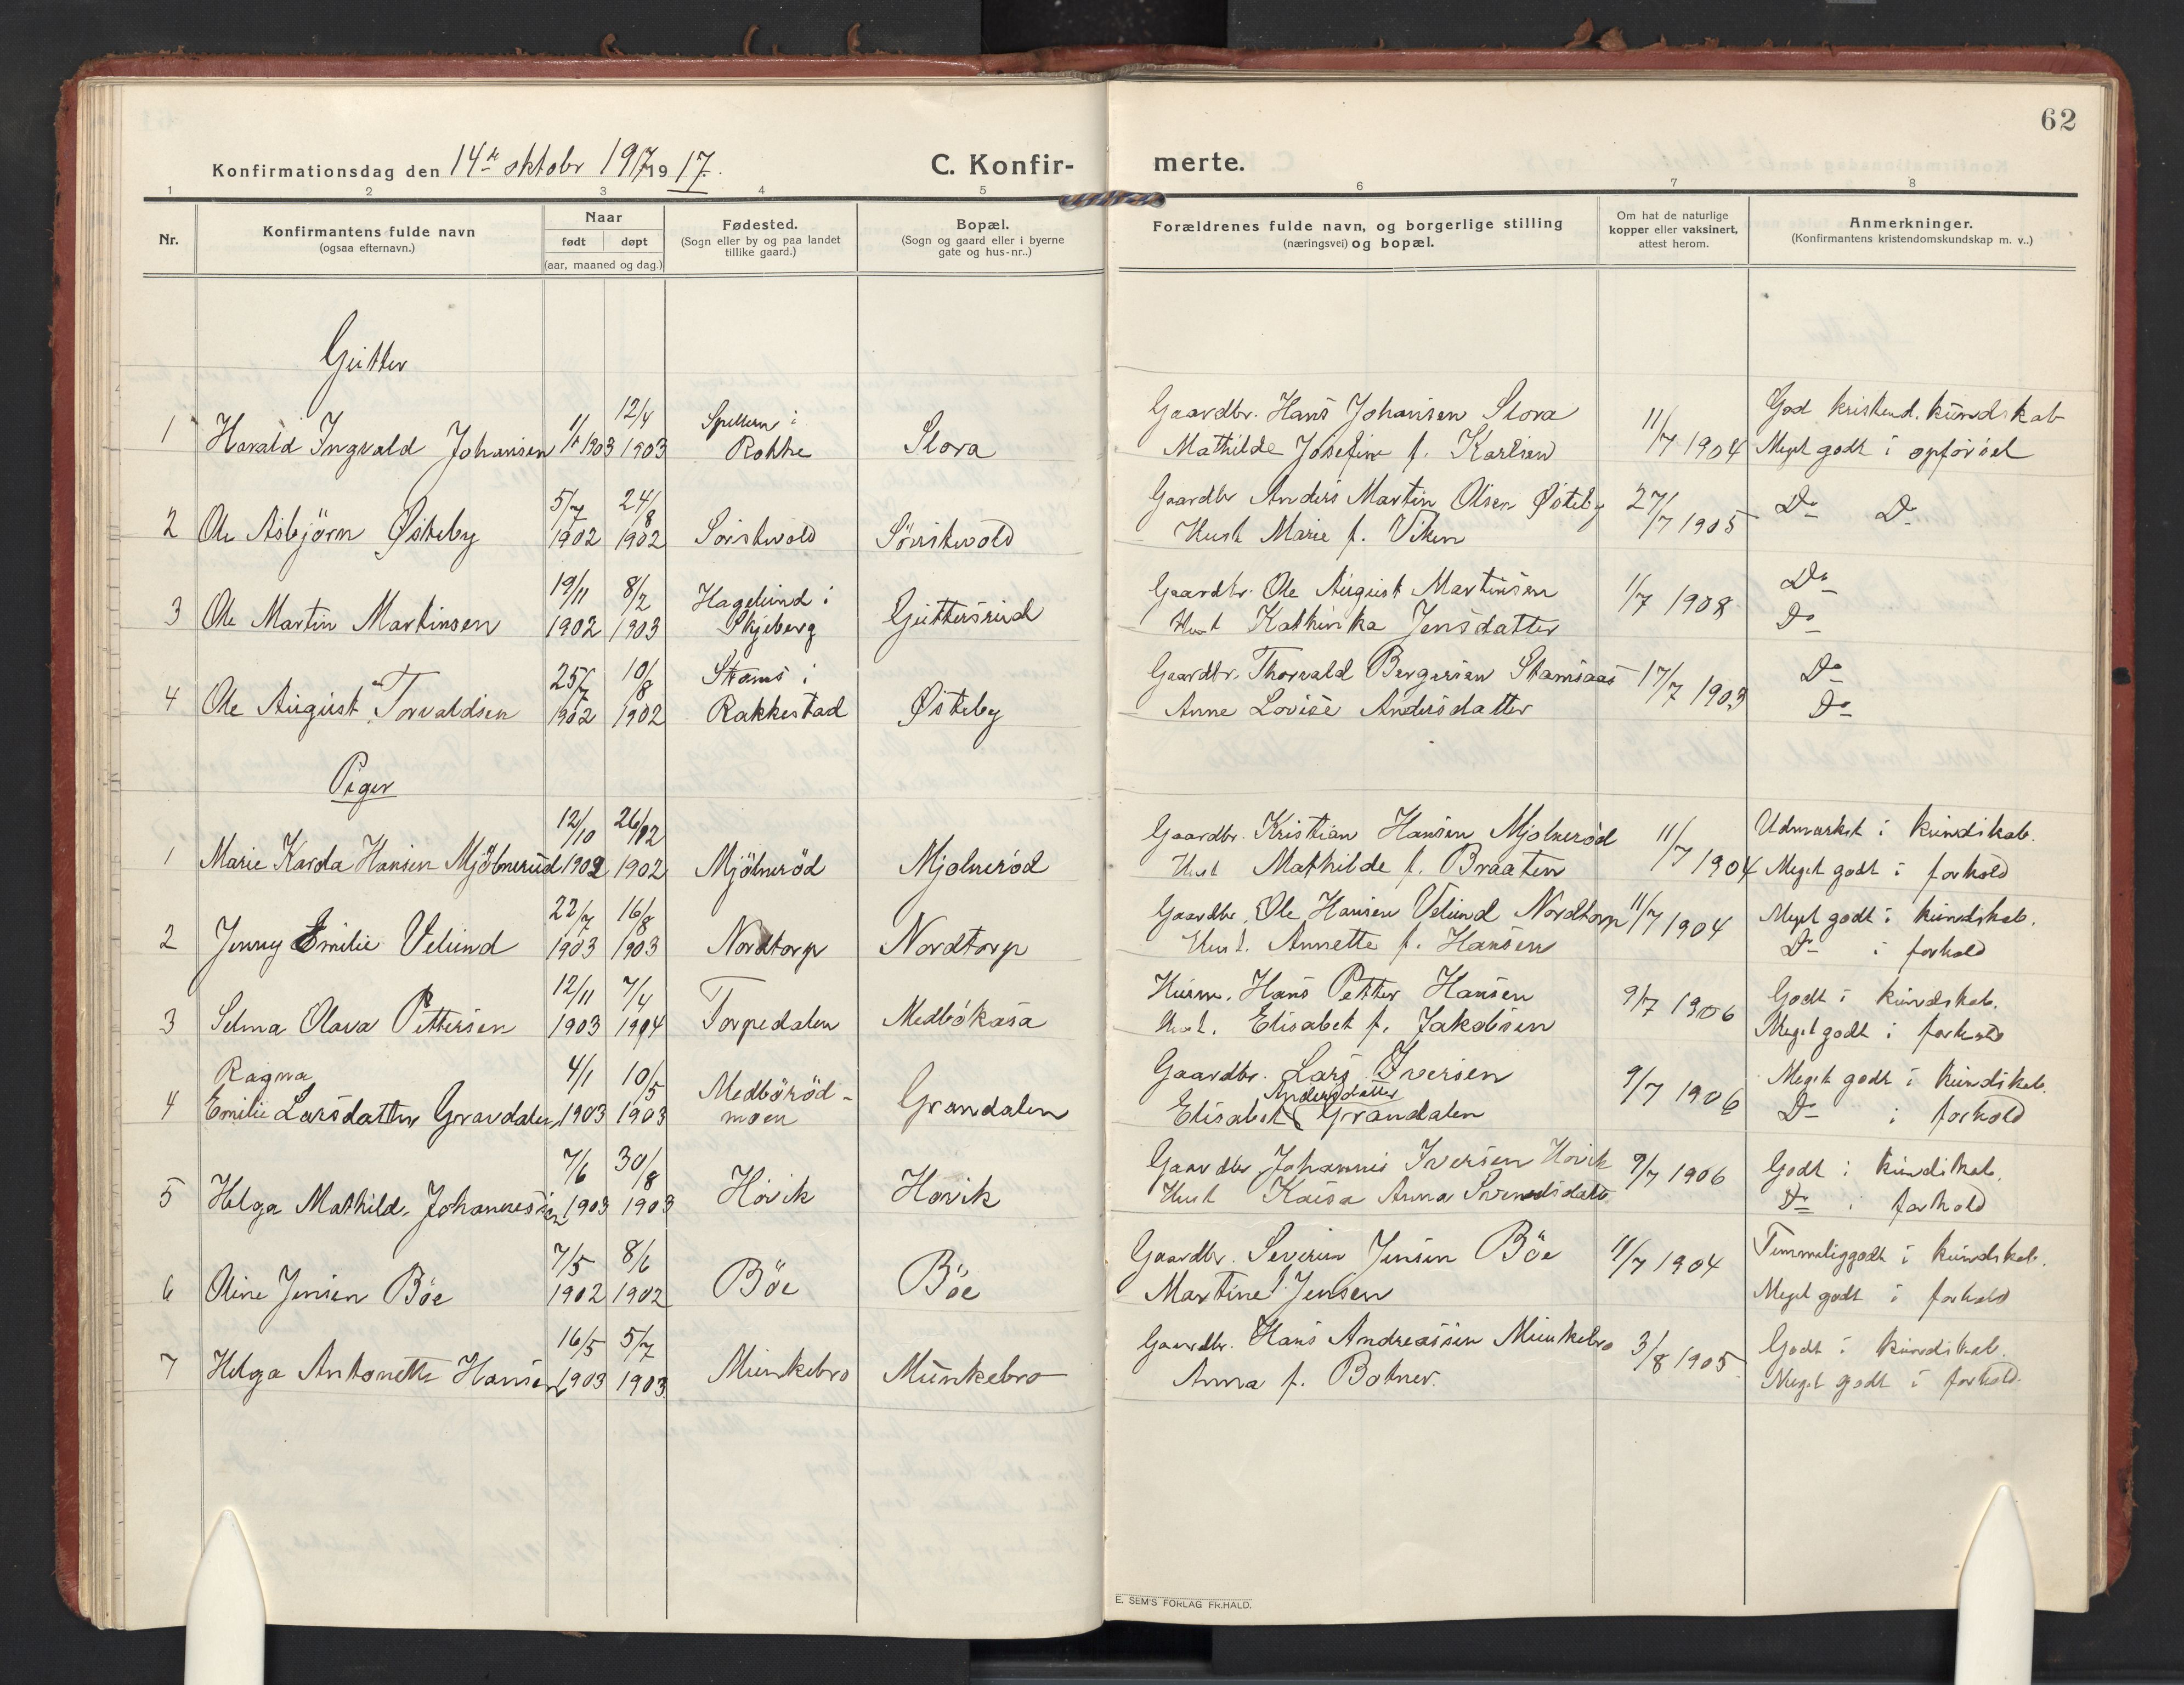 62
Konfirmationsdag den 14de oktobr 1917 19 17.
C. Konfir-
merte.
1 2 3 4 5 6 7 8
Nr.
Konfirmantens fulde navn
(ogsaa efternavn.)
Naar
født døpt
(aar, maaned og dag.)
Fødested.
(Sogn eller by og paa landet
tillike gaard.)
Bopæl.
(Sogn og gaard eller i byerne
gate og hus-nr..)
Forældrenes fulde navn, og borgerlige stilling
(næringsvei) og bopæl.
Om hat de naturlige
kopper eller vaksinert,
attest herom.
Anmerkninger.
(Konfirmantens kristendomskundskap m. v..)
Gutter
12/4 Spellum i Gaardbr. Hans Johansen Slora 11/7 1904 God kristend. kundskab
1 Harald Ingvald Johansen 1/1 1903 1903 Rokke Slora Mathilde Josefine f. Karlsen Meget godt i opførsel
5/7 24/8 Gaardbr Anders Martin Olsen Østeby 27/7 1905 Do Do
2 Ole Asbjörn Østeby 1902 1902 Sörstevold Hust Marie f. Viken
19/11 8/2 Hagelund i Gaardbr. Ole August Martinsen 1/7 1908 Do
3 Ole Martin Martinsen 1902 1903 Skjeberg Guttersrud Hust Kathinka Jensdatter Do
25/7 10/8 Stams i Gaardbr. Thorvald Bergersen Stamsaas 17/7 1903 Do
4 Ole August Torvaldsen 1902 1902 Rakkestad Østeby Anne Lovise Andersdatter Do
Piger
12/10 26/12 Gaardbr. Kristian Hansen Mjølnerød 11/7 1904 Udmærket i kundskab.
1 Marie Karda Hansen Mjölnerud 1902 1902 Mjölneröd Mjølnerød Hust Mathilde f. Braaten Meget godt i forhold
22/7 16/8 Gaardbr. Ole Hansen Velund Nordtorp 11/7 1904 Meget godt i kundskab.
2 Jenny Emilie Velund 1903 1903 Nordtorp Nordtorp Hust. Annette f. Hansen Do i forhold
12/11 7/4 Husm. Hans Petter Hansen 9/7 1906 Godt i kundskab.
3 Selma Olava Pettersen 1903 1904 Torpedalen Medbökasa Hust. Elisabet f. Jakobsen Meget godt i forhold
Ragna 4/1 10/5 Medböröd- Gaardbr. Lars Iversen 9/7 1906 Meget godt i kundskab.
Andersdatter
4 Emilie Larsdatter Gravdalen 1903 1903 moen Grandalen Elisabet Grandalen Do i forhold
7/6 30/8 Gaardbr Johannis Iversen Hovik 9/7 1906 Godt i kundskab.
5 Helga Mathilde Johannessen 1903 1903 Hövik Høvik Hust Kaisa Anna Svendsdatt Do i forhold
7/5 8/6 Gaardbr. Severin Jensen Böe 11/7 1904 Temmeliggodt i kundskab.
6 Oline Jensen Böe 1902 1902 Böe Böe Martine Jensen Meget godt i forhold
16/5 5/7 Gaardbr. Hans Andreassen Munkebro 3/8 1905 Godt i kundskab.
7 Helga Antonette Hansen 1903 1903 Munkebro Munkebro Anna f. Botner. Meget godt i forhold.
E. SEM'S FORLAG FR.HALD.